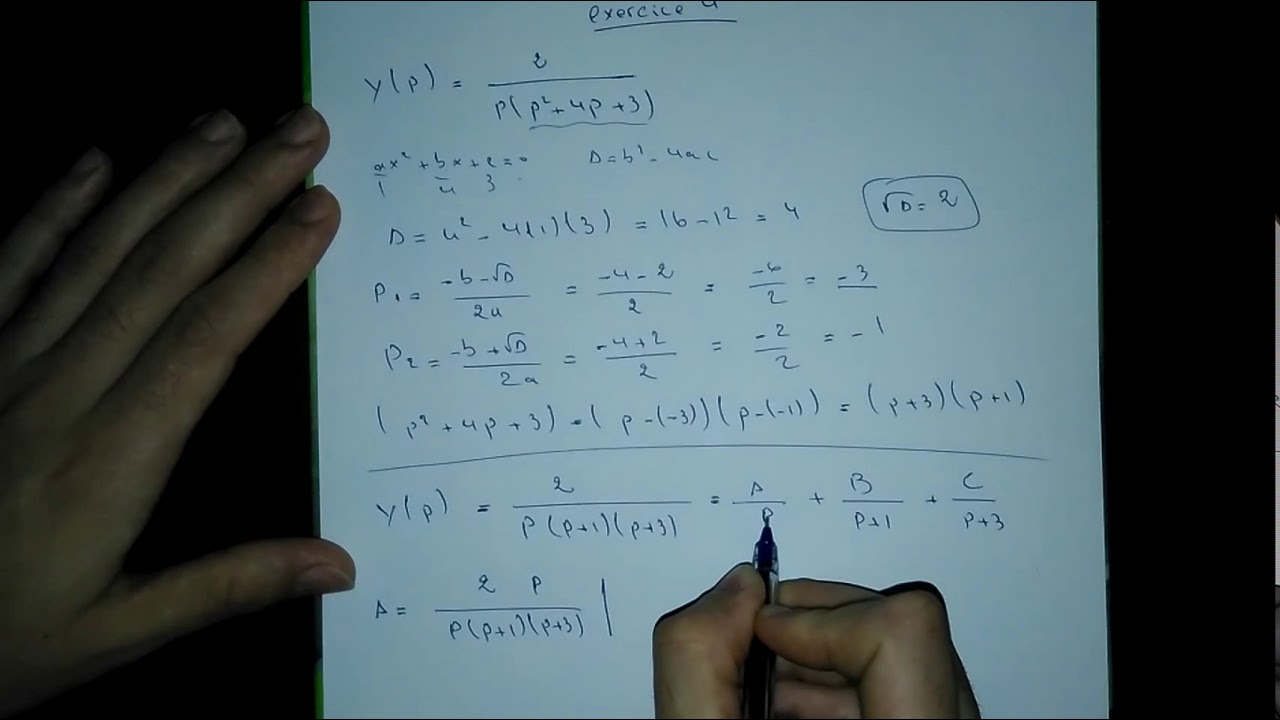 exercice 4
Y(p) = 2 / p(p²+4p+3)
ax²+bx+c=0 D=b²-4ac
1 4 3
D = 4² - 4(1)(3) = 16-12 = 4 √D = 2
P₁ = -b-√D / 2a = -4-2 / 2 = -6 / 2 = -3
P₂ = -b+√D / 2a = -4+2 / 2 = -2 / 2 = -1
(p²+4p+3) = (p-(-3))(p-(-1)) = (p+3)(p+1)
Y(p) = 2 / p(p+1)(p+3) = A / p + B / p+1 + C / p+3
A = 2 p / p(p+1)(p+3) |